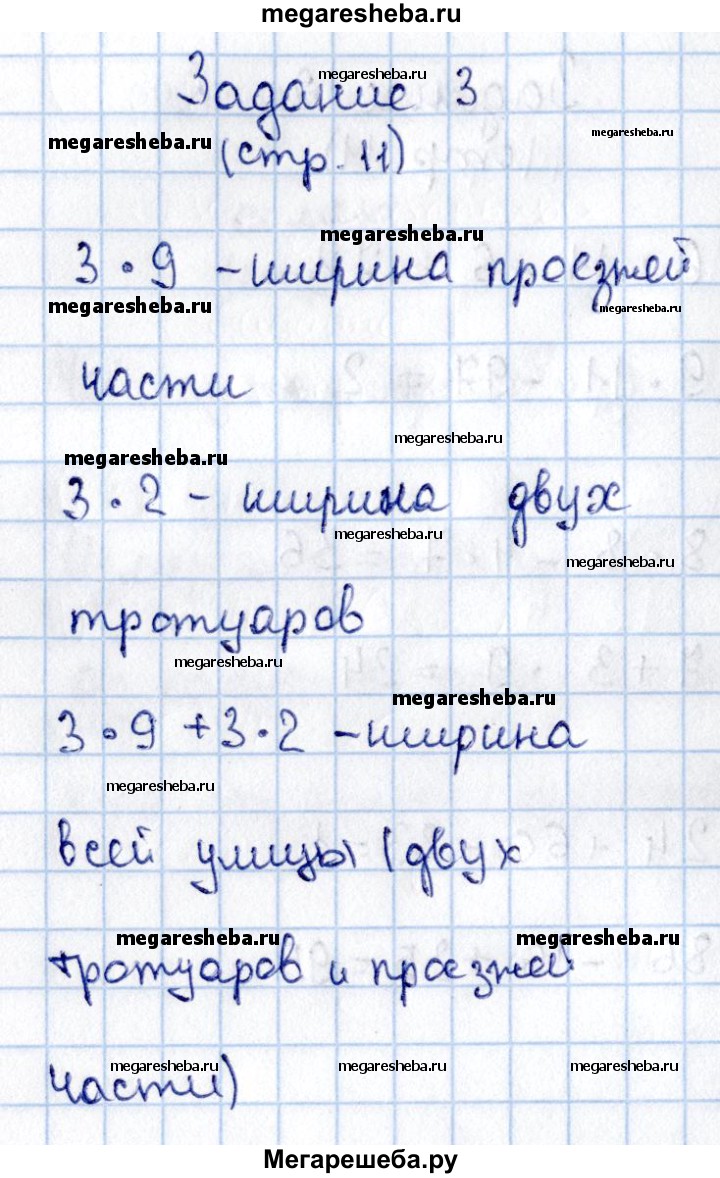 megaresheba.ru
Задание 3
megaresheba.ru
megaresheba.ru
megaresheba.ru
(стр. 11)
megaresheba.ru
3 · 9 - ширина проезжей
megaresheba.ru
megaresheba.ru
части
megaresheba.ru
megaresheba.ru
3 · 2 - ширина двух
megaresheba.ru
megaresheba.ru
тротуаров
megaresheba.ru
megaresheba.ru
3 · 9 + 3 · 2 - ширина
megaresheba.ru
всей улицы (двух
megaresheba.ru
megaresheba.ru
тротуаров и проезжей
megaresheba.ru
megaresheba.ru
megaresheba.ru
части)
Мегарешеба.ру